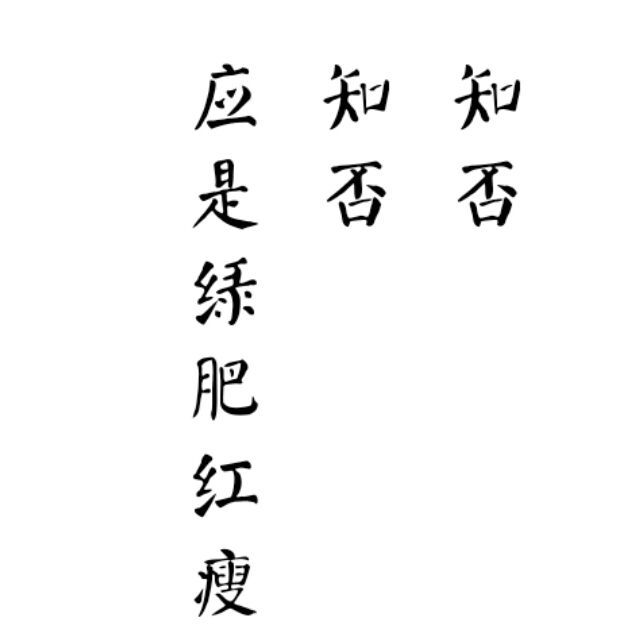 知否
知否
应是绿肥红瘦